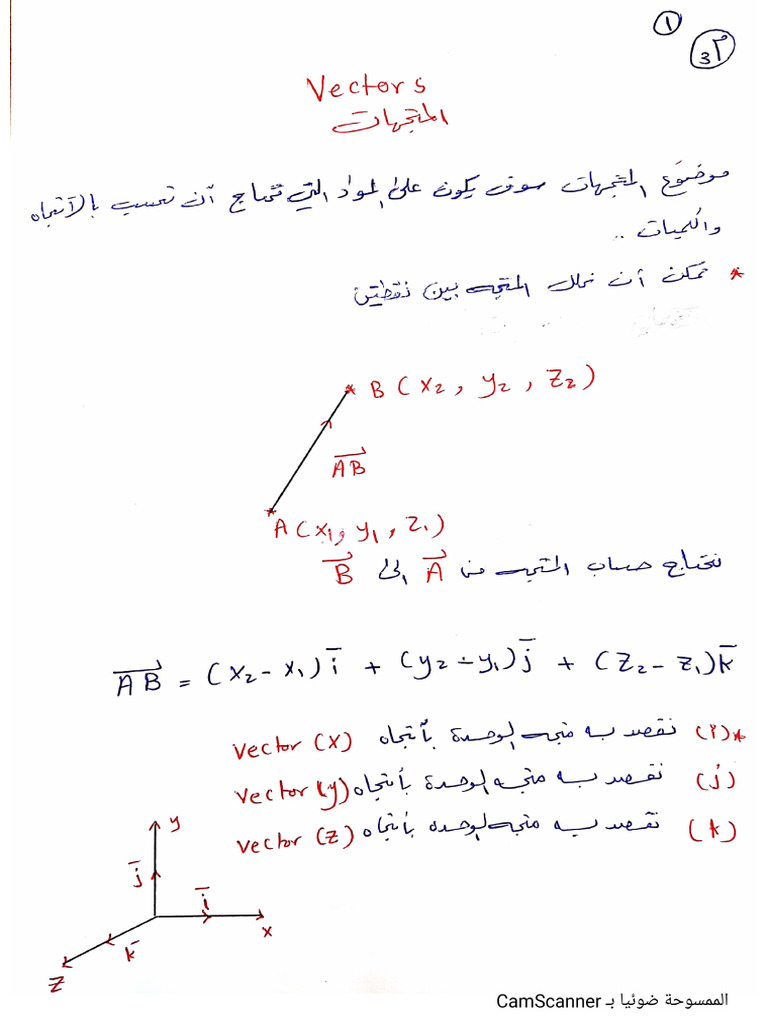 ①
م3
Vectors
المتجهات
موضوع المتجهات سوف يكون على المواد التي تحتاج أن تحسب بالأتجاه
والكميات ..
* ممكن أن نملك المتجه بين نقطتين
B (x₂ , y₂ , z₂)
AB
A (x₁, y₁ , z₁)
نحتاج حساب المتجه من A الى B
AB = (x₂ - x₁) i + (y₂ - y₁) j + (z₂ - z₁) k
*(i) نقصد به متجه الوحدة بأتجاه vector (x)
(j) نقصد به متجه الوحدة بأتجاه vector (y)
(k) نقصد به متجه الوحدة بأتجاه vector (z)
y
j
i
x
k
z
الممسوحة ضوئيا بـ CamScanner